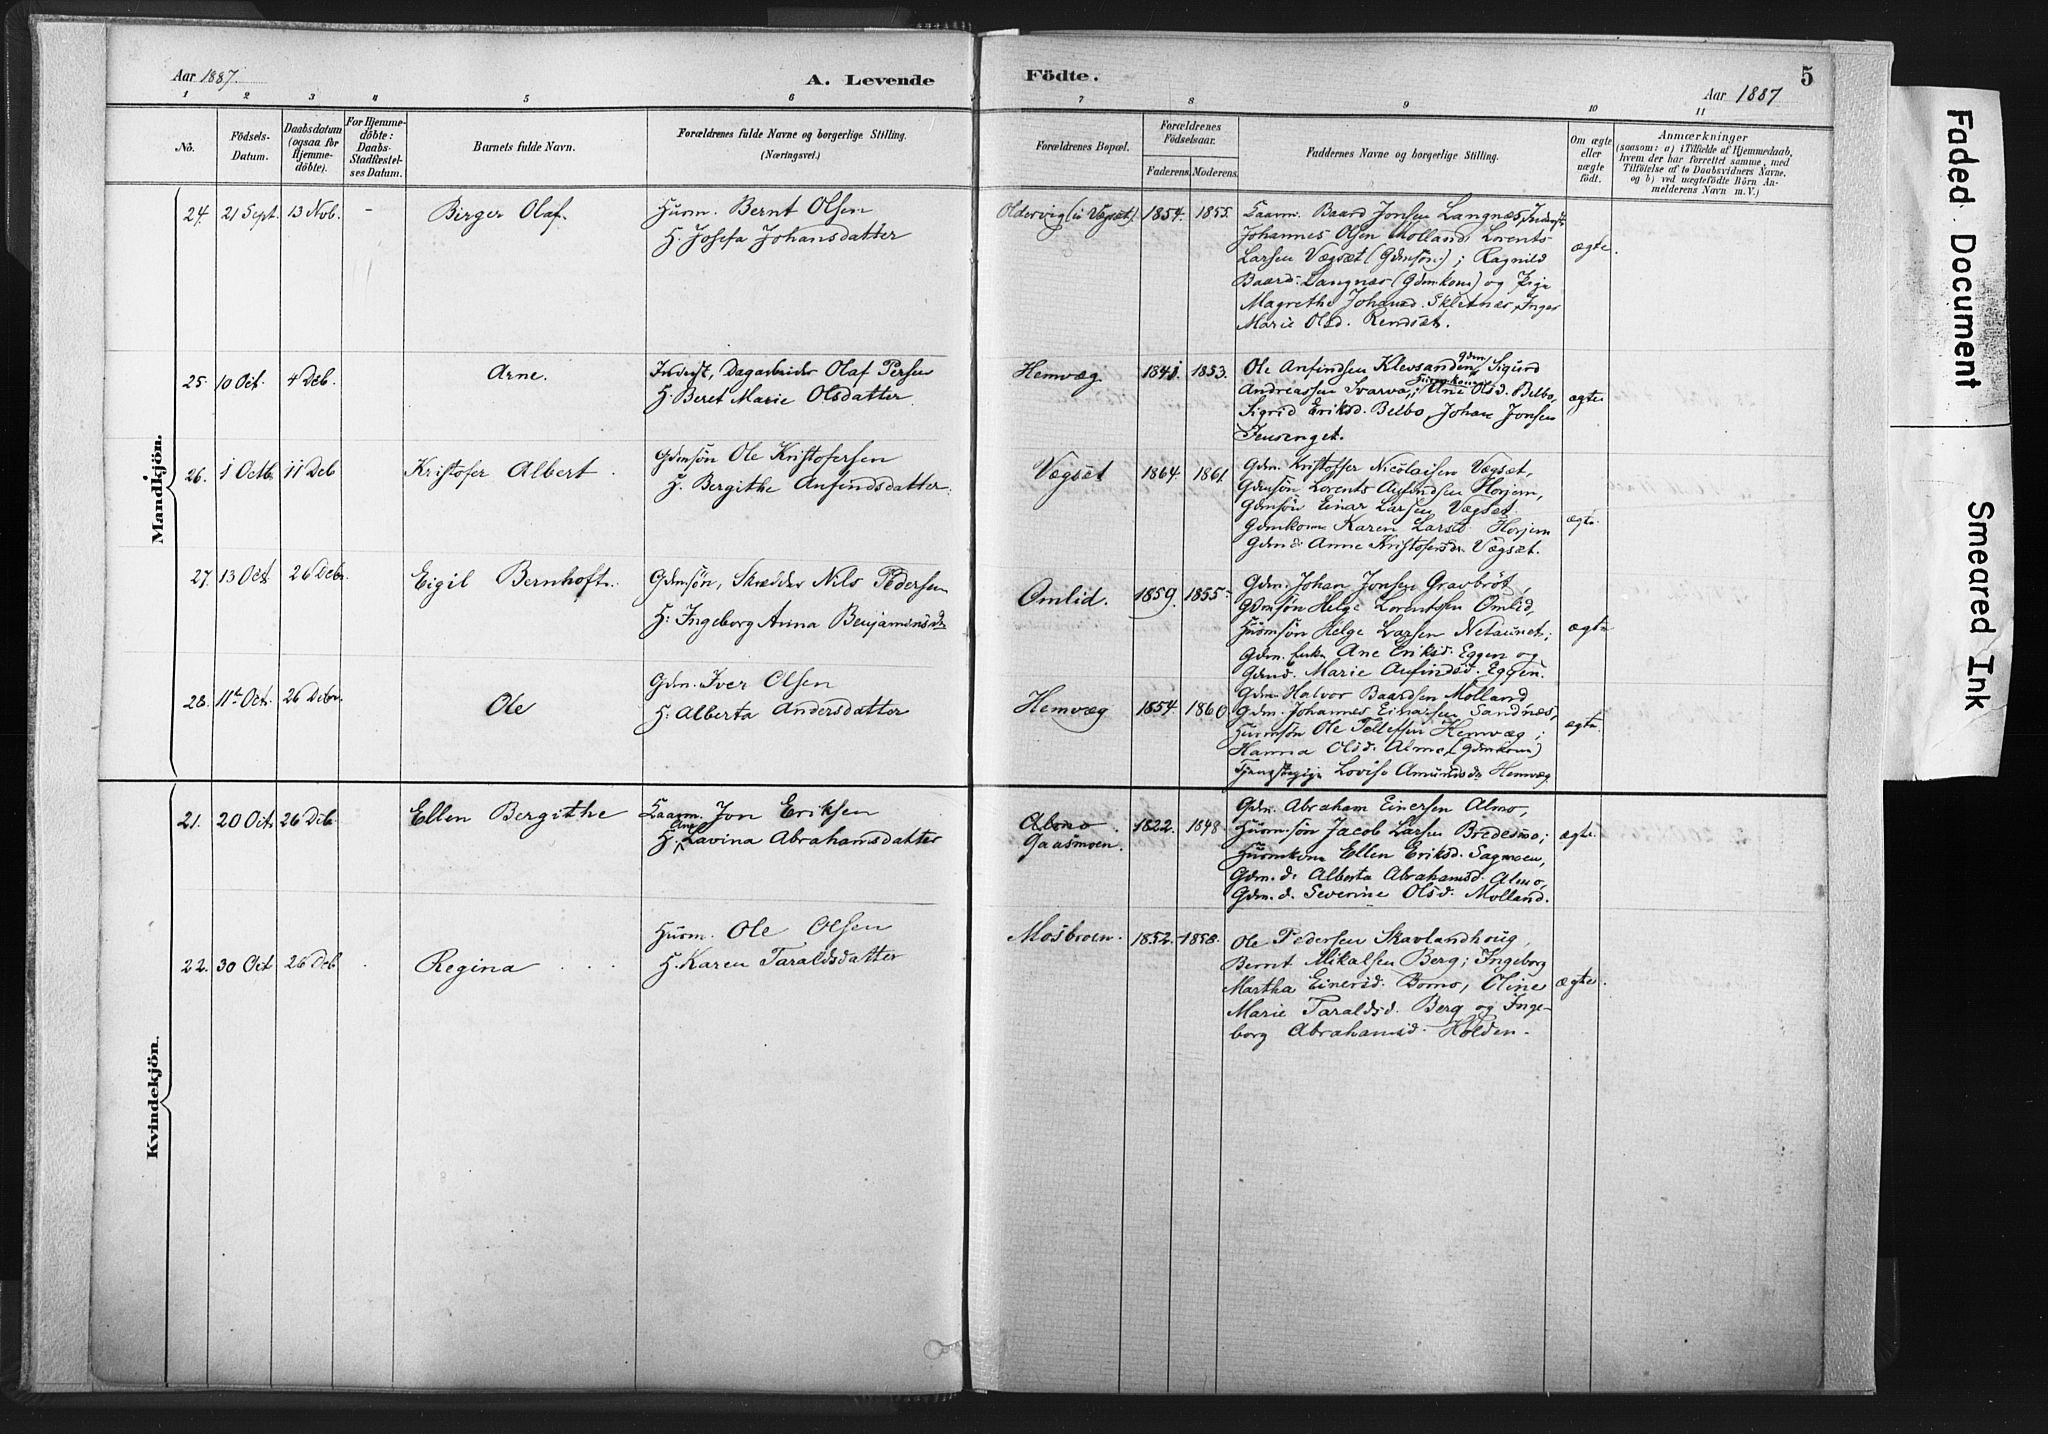 Aar 1887.
A. Levende
Födte.
5
Aar 1887
1 2 3 4 5 6 7 8 9 10 11
No.
Födsels-
Datum.
Daabsdatum
(ogsaa for
Hjemme-
döbte).
For Hjemme-
döbte:
Daabs-
Stadfæstel-
ses Datum.
Barnets fulde Navn.
Forældrenes fulde Navne og borgerlige Stilling.
(Næringsvei.)
Forældrenes Bopæl.
Forældrenes
Födselsaar.
Faderens. Moderens.
Faddernes Navne og borgerlige Stilling.
Om ægte
eller
uægte
födt.
Anmærkninger
(saasom: a) i Tilfælde af Hjemmedaab,
hvem der har forrettet samme, med
Tilföielse af to Daabsvidners Navne.
og b) ved uægtefödte Börn An-
melderens Navn m. V.)
Mandkjön.
24. 21 Sept. 13 Nov. - Birger Olaf.
Huusm. Bernt Olsen
H. Josefa Johansdatter
Oldervig (u. Vægset) 1854. 1855.
Baard Jonsen Langnæs, Inderst
Johannes Olsen Molland, Lorents
Larsen Vægset (Gdmsön); Ragnild
Baardsd. Langnæs (Gdmkone) og Pige
Magrethe Johansd. Skletnæs, Inger
Marie Olsd. Rendsæt.
ægte.
25. 10 Oct. 4 Deb. Arne.
Inderst, Dagarbeider Olaf Persen
H. Beret Marie Olsdatter
Hemvæg 1841. 1853.
Ole Anfindsen Klevsanden Gdm, Sigurd
Andreassen Svarva; Ane Olsd. Belbo,
Sigrid Eriksd. Belbo, Johan Jonsen
ægte
26. 1 Octb. 11 Deb. Kristofer Albert.
Gdmsön Ole Kristofersen
H. Bergithe Anfindsdatter.
Vægsæt 1864. 1861.
Gdm. Kristoffer Nicolaisen Vægset,
Gdmsön Lorents Anfindsen Horjem,
Gdmsön Einar Larsen Vægset.
Gdmkone Karen Larsd. Horjem
Gdmd. Anne Kristofersdr. Vægset.
ægte.
27. 13 Oct. 26 Debr. Eigil Bernhoft.
Gdmsön, Skrædder Nils Pedersen
H. Ingeborg Anna Benjaminsdr
Omlid. 1859. 1855.
Gdm. Johan Jonsen Gravbröt,
Gdmsön Helge Lorentssen Omlid,
Husmsön Helge Larsen Netaunet;
Gdm. enke Ane Eriksd. Eggen og
Gdmd. Marie Anfindsd. Eggen.
ægte
28. 11te Oct. 26 Debr. Ole
Gdm. Iver Olsen
H. Alberta Andersdatter
Hemvæg 1854. 1860.
Gdm. Halvor Baardsen Molland
Gdm. Johannes Einarsen Sandnæs,
Husmsön Ole Tellefsen Hemvæg;
Hanna Olsd. Almo (Gdmkone)
Tjenestepige Lovise Amundsdr Hemvæg
ægte
Kvindekjön.
21. 20 Oct. 26 Deb. Ellen Bergithe
Jon Eriksen
H. Ane Lavina Abrahamsdatter
Almo
Gaasmoen. 1822. 1848.
Gdm. Abraham Einersen Almo,
Husm.sön Jacob Larsen Bredesmo;
Husmkone Ellen Eriksd. Sagmoen,
Gdm. d. Alberta Abrahamsd. Almo,
Gdm. d. Severine Olsd. Molland.
ægte.
22. 30 Oct 26 Deb. Regina
Husm. Ole Olsen
H. Karen Taraldsdatter
Mosbroen. 1852. 1858.
Ole Pedersen Skavlandhoug,
Bernt Mikalsen Berg; Ingeborg
Martha Einersd. Bomo, Oline
Marie Taraldsd. Berg og Inge-
borg Abrahamsd. Holden.
ægte.
Faded Document
Smeared Ink